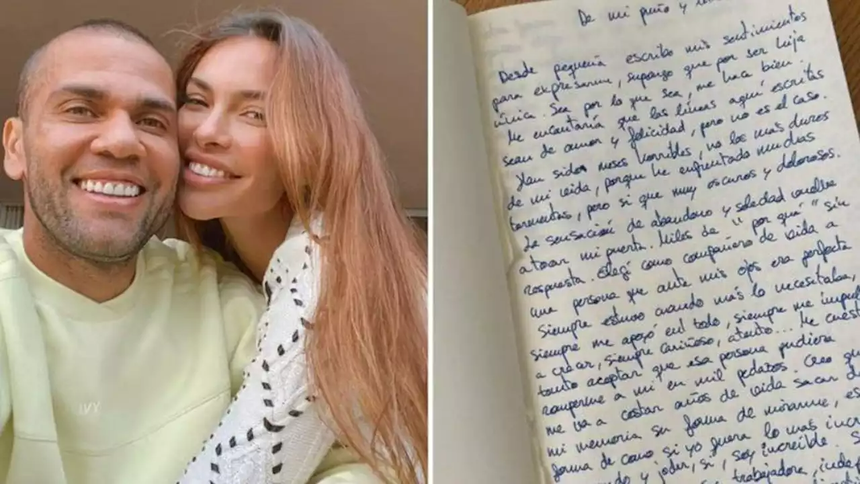 IVY
De mi puño y
Desde pequeña escribo mis sentimientos
para expresarme, supongo que por ser hija
única. Sea por lo que sea, me hace bien.
Me encantaría que las líneas aquí escritas
sean de amor y felicidad, pero no es el caso.
Han sido meses horribles, no los más duros
de mi vida, porque he enfrentado muchas
tormentas, pero sí que muy oscuros y dolorosos.
La sensación de abandono y soledad vuelve
a tocar mi puerta. Miles de "por qué" sin
respuesta. Elegí como compañero de vida a
una persona que ante mis ojos era perfecta
siempre estuvo cuando más lo necesitaba,
siempre me apoyó en todo, siempre me
a crecer, siempre cariñoso, atento... Me
tanto aceptar que esa persona pudiera
romperme a mí en mil pedazos. Creo
me va a costar años de vida sacar
mi memoria su forma de mirarme,
forma de como si yo fuera lo más
y joder, sí, soy increíble.
trabajadora,